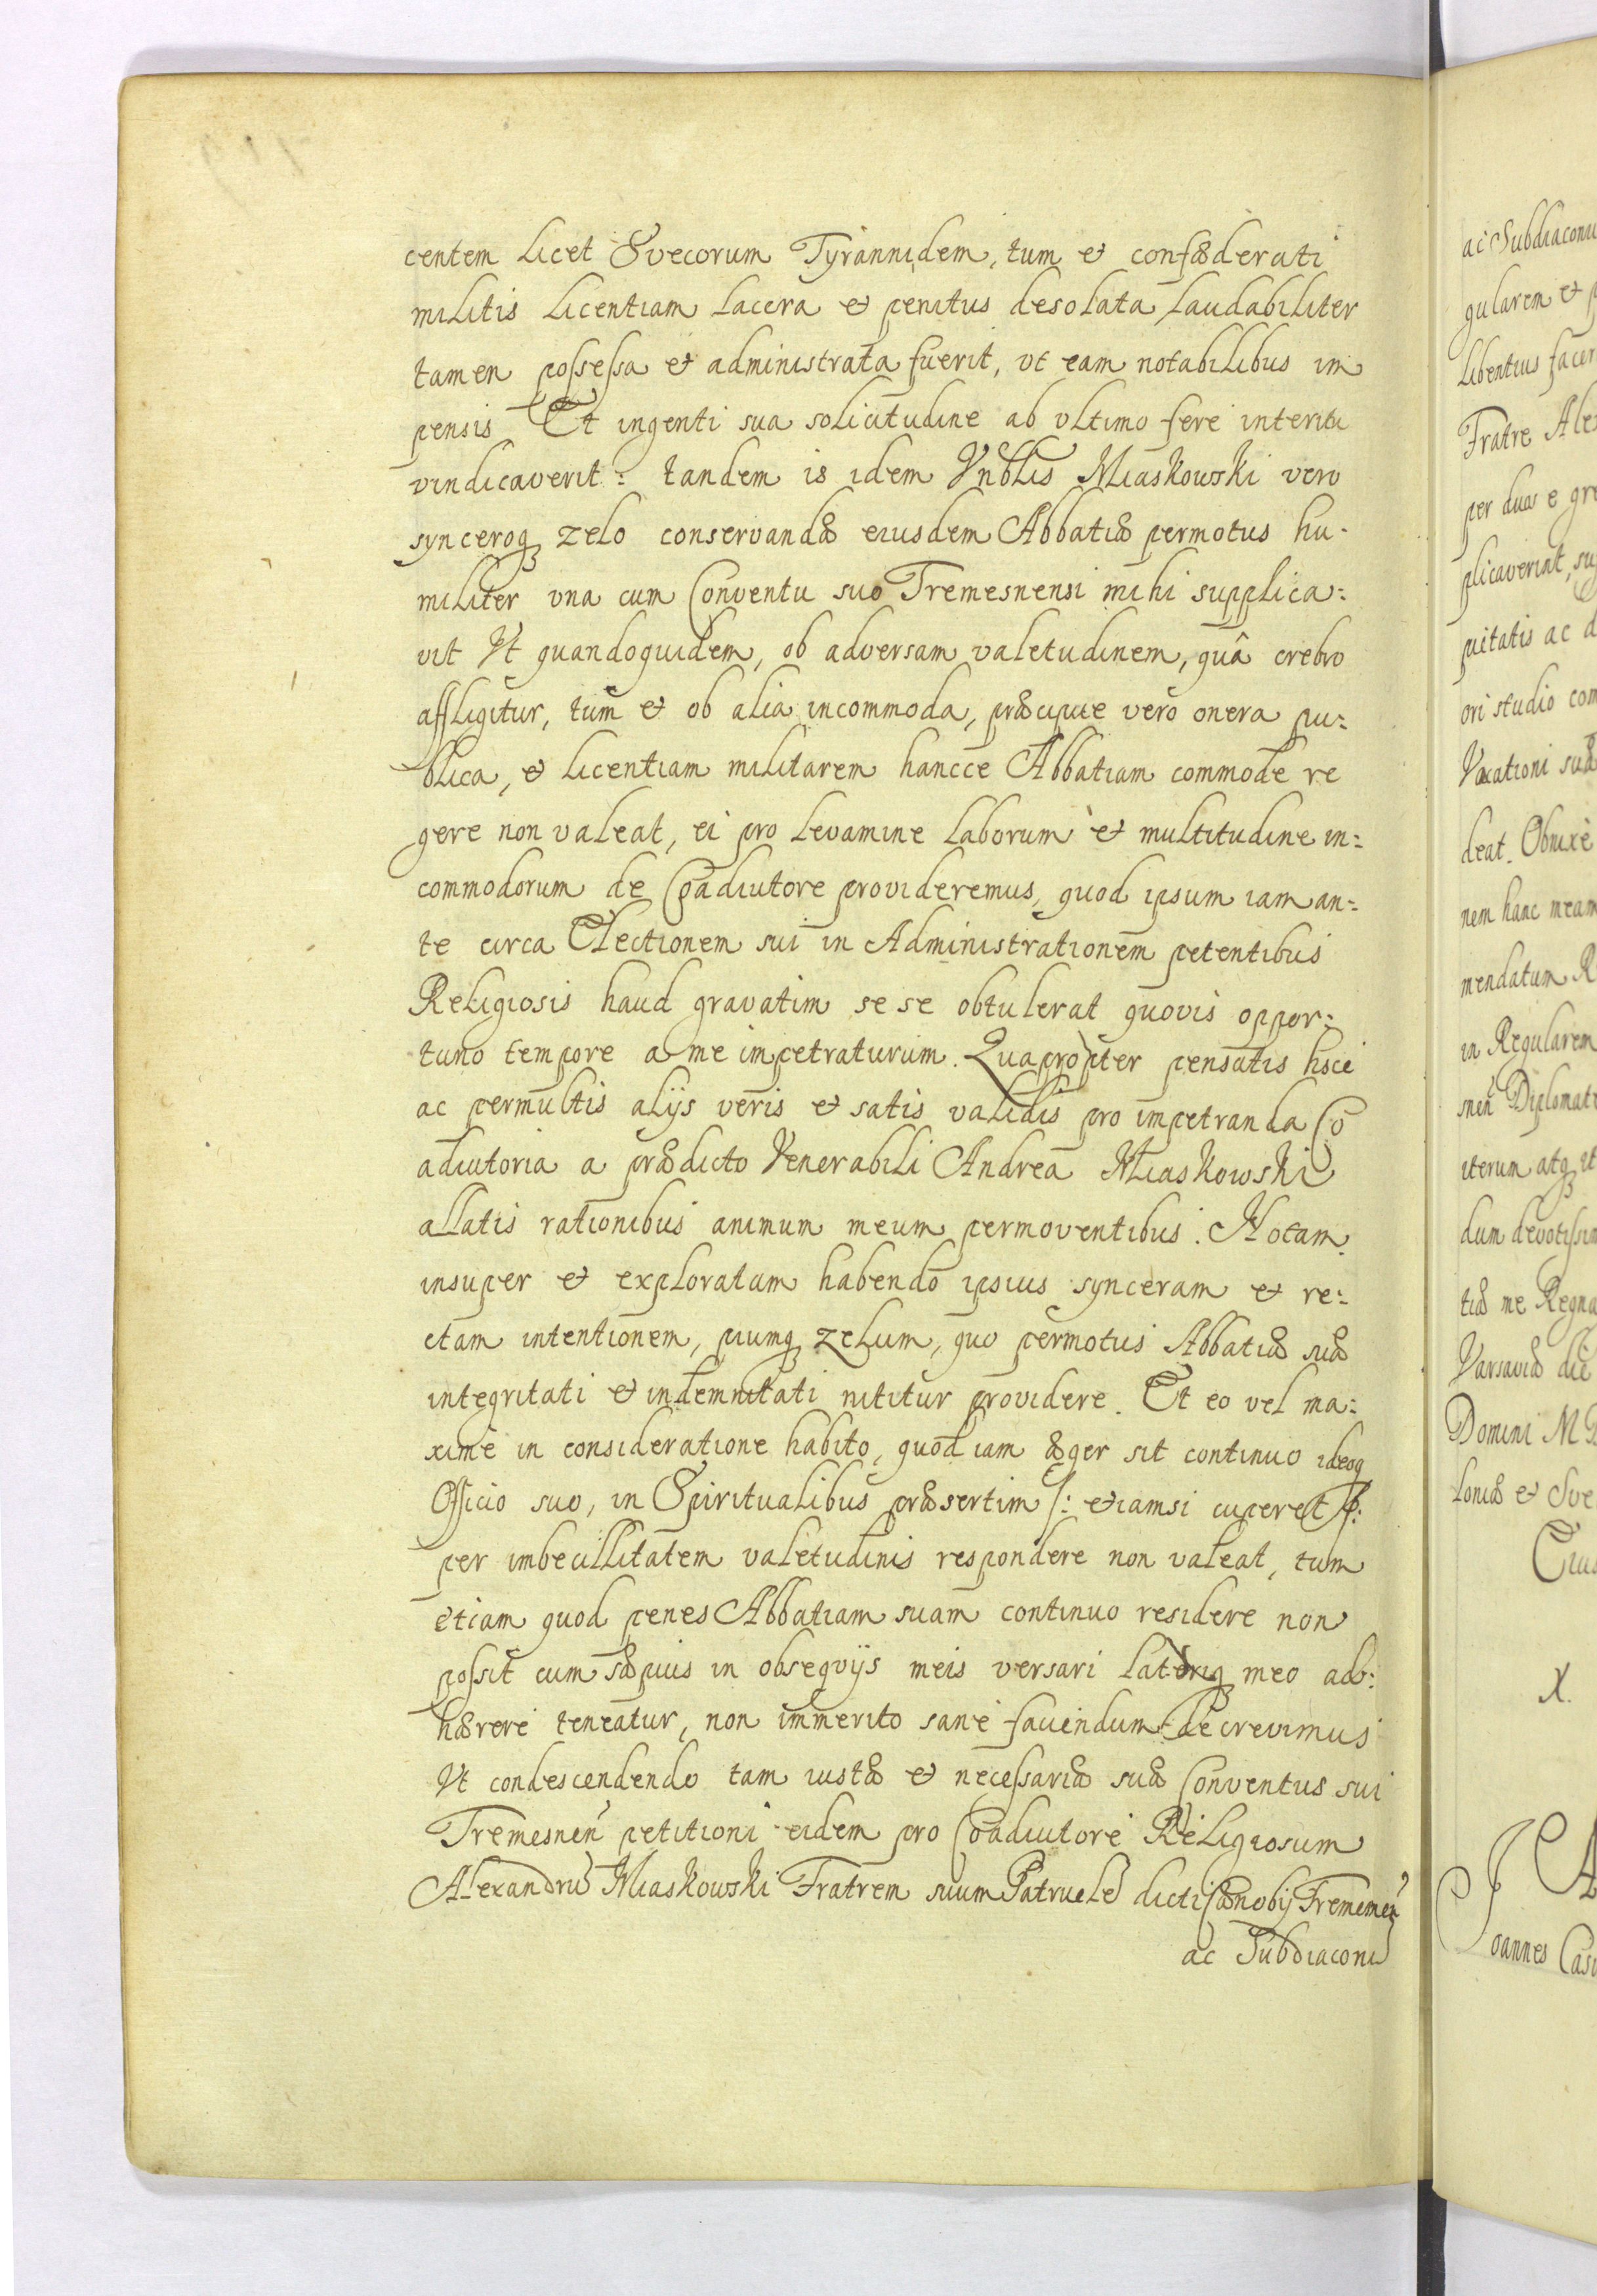 centem licet Svecorum Tyrannidem, tum et confæderati
militis licentiam lacera et penitus desolata laudabiliter
tamen possessa et administrata fuerit, vt eam notabilibus im
pensis Et ingenti sua solicitudine ab vltimo fere interitu
vindicaverit: tandem is idem Vnblis Miaskowski vero
synceroq zelo conservandæ eiusdem Abbatiæ permotus hu-
militer vna cum Conventu suo Tremesnensi mihi supplica:
vit Vt quandoquidem, ob adversam valetudinem, quâ crebro
affligitur, tum et ob alia incommoda, præcipue vero onera pu:
blica, et licentiam militarem hancce Abbatiam commode re
gere non valeat, ei pro levamine laborum et multitudine in:
commodorum de Coadiutore provideremus, quod ipsum iam an:
te circa Electionem sui in Administrationem petentibus
Religiosis haud gravatim se se obtulerat quovis oppor:
tuno tempore a me impetraturum. Quapropter pensatis hsce
ac permultis alijs veris et satis validis pro impetranda Co
adiutoria a prædicto Venerabili Andrea Miaskowski
allatis rationibus animum meum permoventibus. Notam
insuper et exploratam habendo ipsius synceram et re:
ctam intentionem, piumq zelum, quo permotus Abbatiæ suæ
integritati et indemnitati nititur providere. Et eo vel ma:
xime in consideratione habito, quod iam æger sit continuo ideoq
Officio suo, in Spiritualibus præsertim /: etiamsi cuperet /:
per imbecillitatem valetudinis respondere non valeat, tum
etiam quod penes Abbatiam suam continuo residere non
possit cum sæpius in obseqvijs meis versari lateriq meo ad:
hærere teneatur, non immerito sane favendum decrevimus
Vt condescendendo tam iustæ et necessariæ suæ Conventus sui
Tremesnen petitioni eidem pro Coadiutore Religiosum
Alexandrū Miaskowski Fratrem suum Patruelē dicti Cænobij Trememen
ac Subdiaconū
ac Subdiaconu
gularem et p
libentius facer
Fratre Alex
per duos e gre
plicaverint, su
puitatis ac d
ori studio com
Vocationi suæ
deat. Obnixe
nem hanc meam
mendatum R
in Regularem
snen Diplomati
iterum atq it
dum devotissim
tiæ me Regna
Varsaviæ die
Domini M D
loniæ et Sve
Eius
X.
Joannes Casi